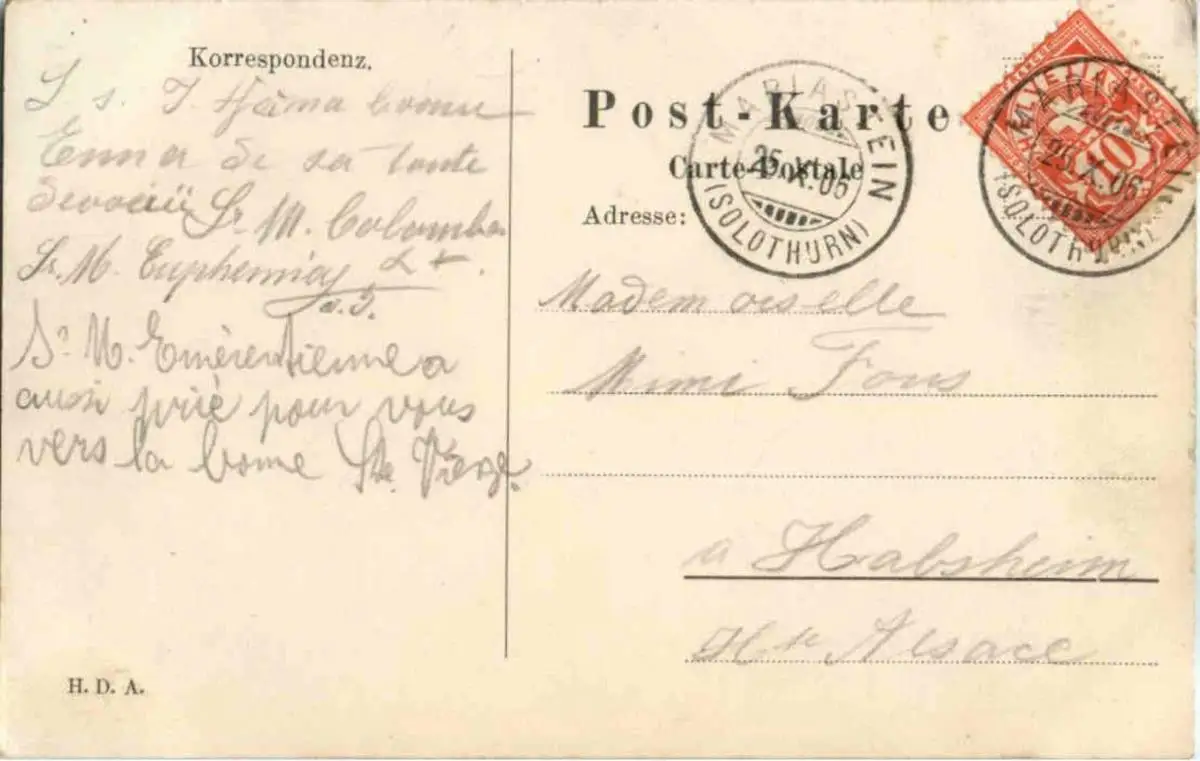 Korrespondenz.
de sa toute
Sr. M. Colomba
Sr. M. Euphemia
Sr. M. Emérentienne a
aussi prié pour vous
vers la bonne Ste. Vierge
H. D. A.
Post-Karte
Carte-Postale
Adresse:
MARIASTEIN
25.X.06
(SOLOTHURN)
HELVETIA
10
MARIASTEIN
25.X.06
(SOLOTHURN)
Mademoiselle
Mimi Fons
a Habsheim
Hte Alsace